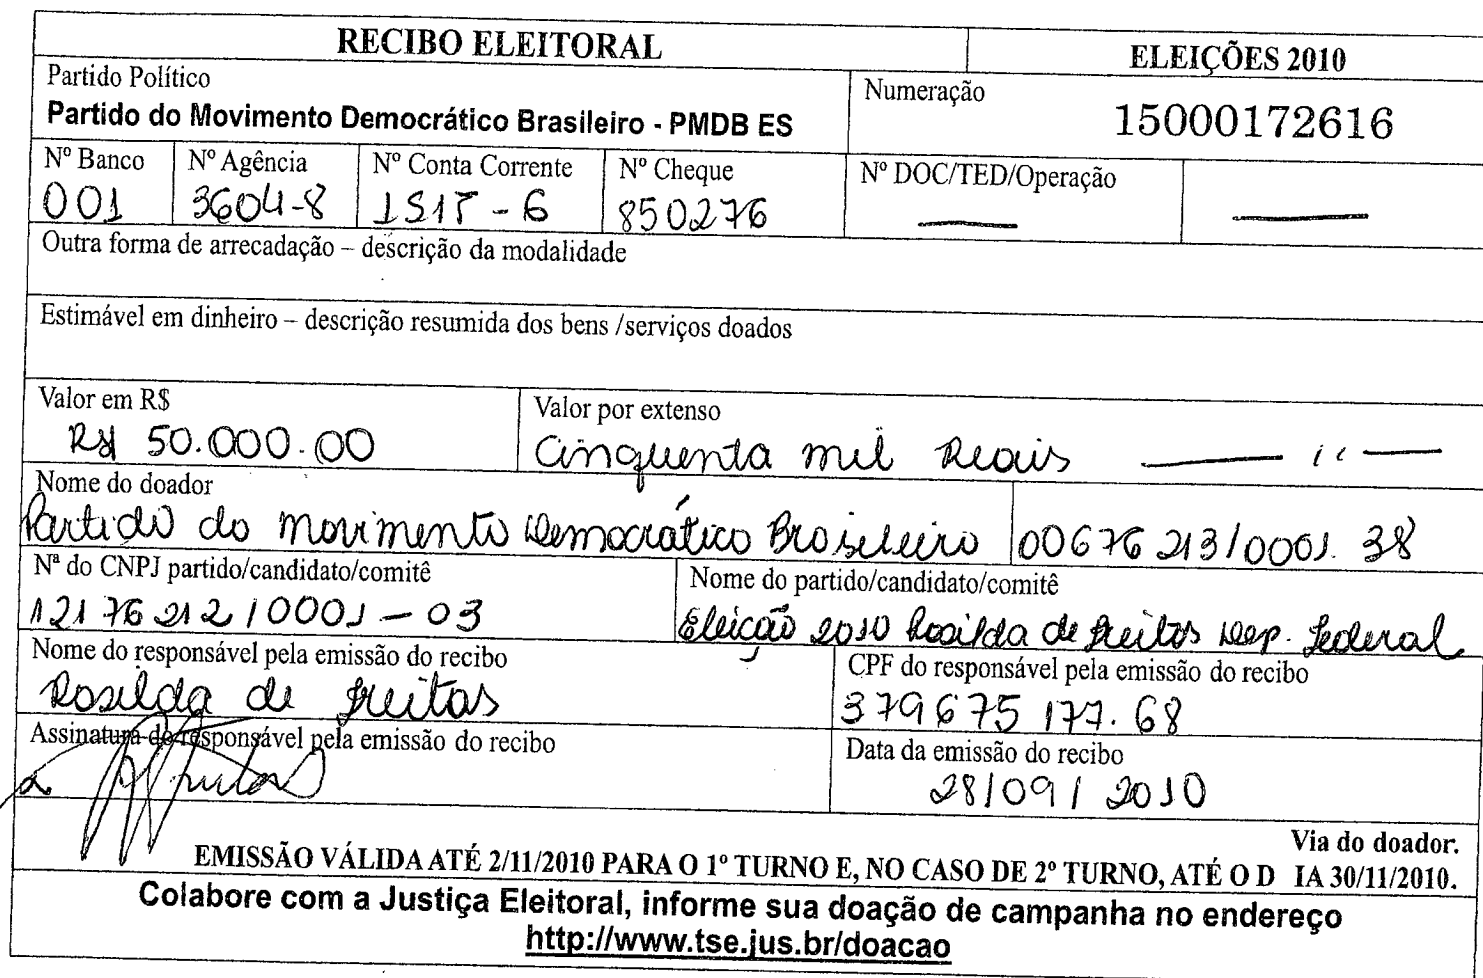 RECIBO ELEITORAL ELEIÇÕES 2010
Partido Político Numeração
Partido do Movimento Democrático Brasileiro - PMDB ES 15000172616
Nº Banco Nº Agência Nº Conta Corrente Nº Cheque Nº DOC/TED/Operação
001 3604-8 850276
Outra forma de arrecadação – descrição da modalidade
Estimável em dinheiro – descrição resumida dos bens /serviços doados
Valor em R$ Valor por extenso
R$ 50.000.00 Cinquenta mil Reais
Nome do doador
Partido do Movimento Democrático Brasileiro 00676213/0001.38
Nª do CNPJ partido/candidato/comitê Nome do partido/candidato/comitê
12176212/0001-03 Eleição 2010 Rosilda de Freitas Dep. Federal
Nome do responsável pela emissão do recibo CPF do responsável pela emissão do recibo
Rosilda de Freitas 379675177.68
Assinatura do responsável pela emissão do recibo Data da emissão do recibo
28/09/2010
Via do doador.
EMISSÃO VÁLIDA ATÉ 2/11/2010 PARA O 1º TURNO E, NO CASO DE 2º TURNO, ATÉ O D IA 30/11/2010.
Colabore com a Justiça Eleitoral, informe sua doação de campanha no endereço
http://www.tse.jus.br/doacao